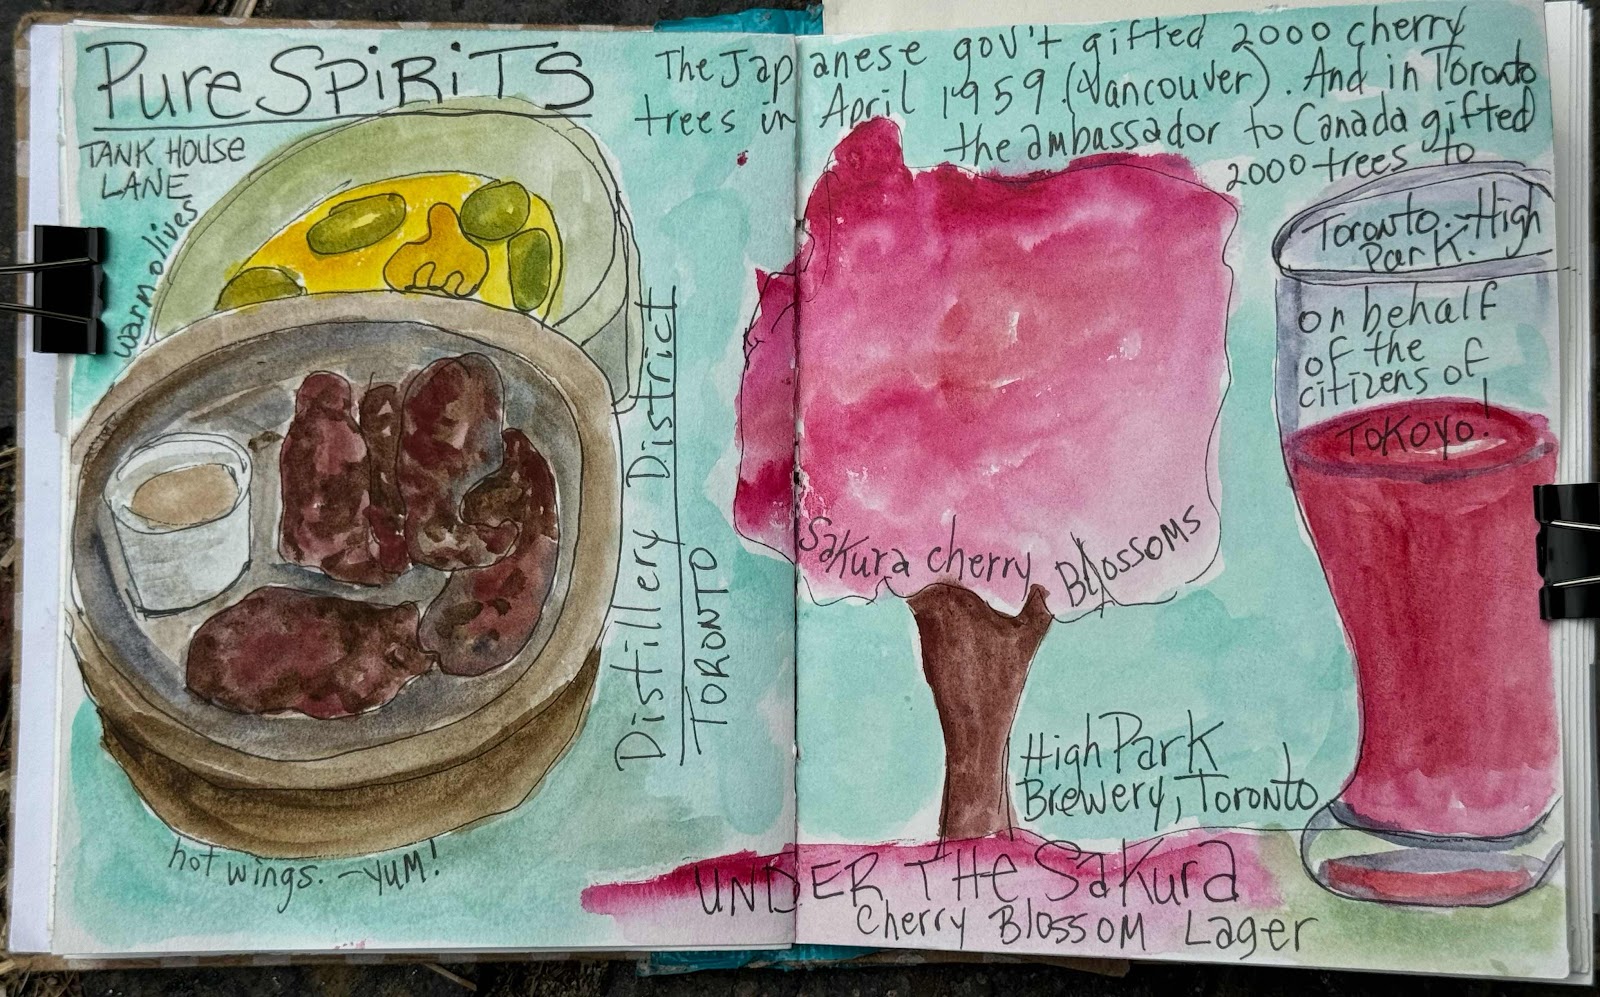 Pure SPiRiTS
TANK HOUSE
LANE
warm olives
Distillery District
TORONTO
hot wings. - YUM!
The Japanese gov't gifted 2000 cherry
trees in April 1959 (Vancouver). And in Toronto
the ambassador to Canada gifted
2000 trees to
Toronto. High
Park.
on behalf
of the
citizens of
TOKOYO!
Sakura cherry Blossoms
High Park
Brewery, Toronto
UNDER THE Sakura
Cherry Blossom Lager